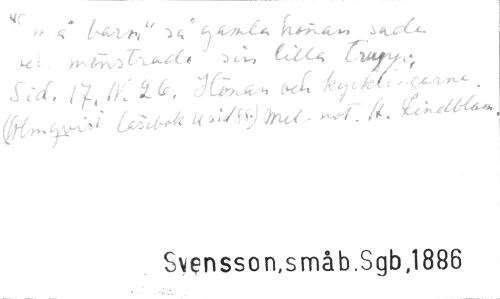 "Små barn" så gamla hönan sade
och mönstrade sin lilla trupp.
Sid. 17. N. 26. Hönan och kycklingarne.
(Almqvist Läsebok II sid 85.) Mel. not. A. Lindblam.
Svensson,småb.Sgb,1886